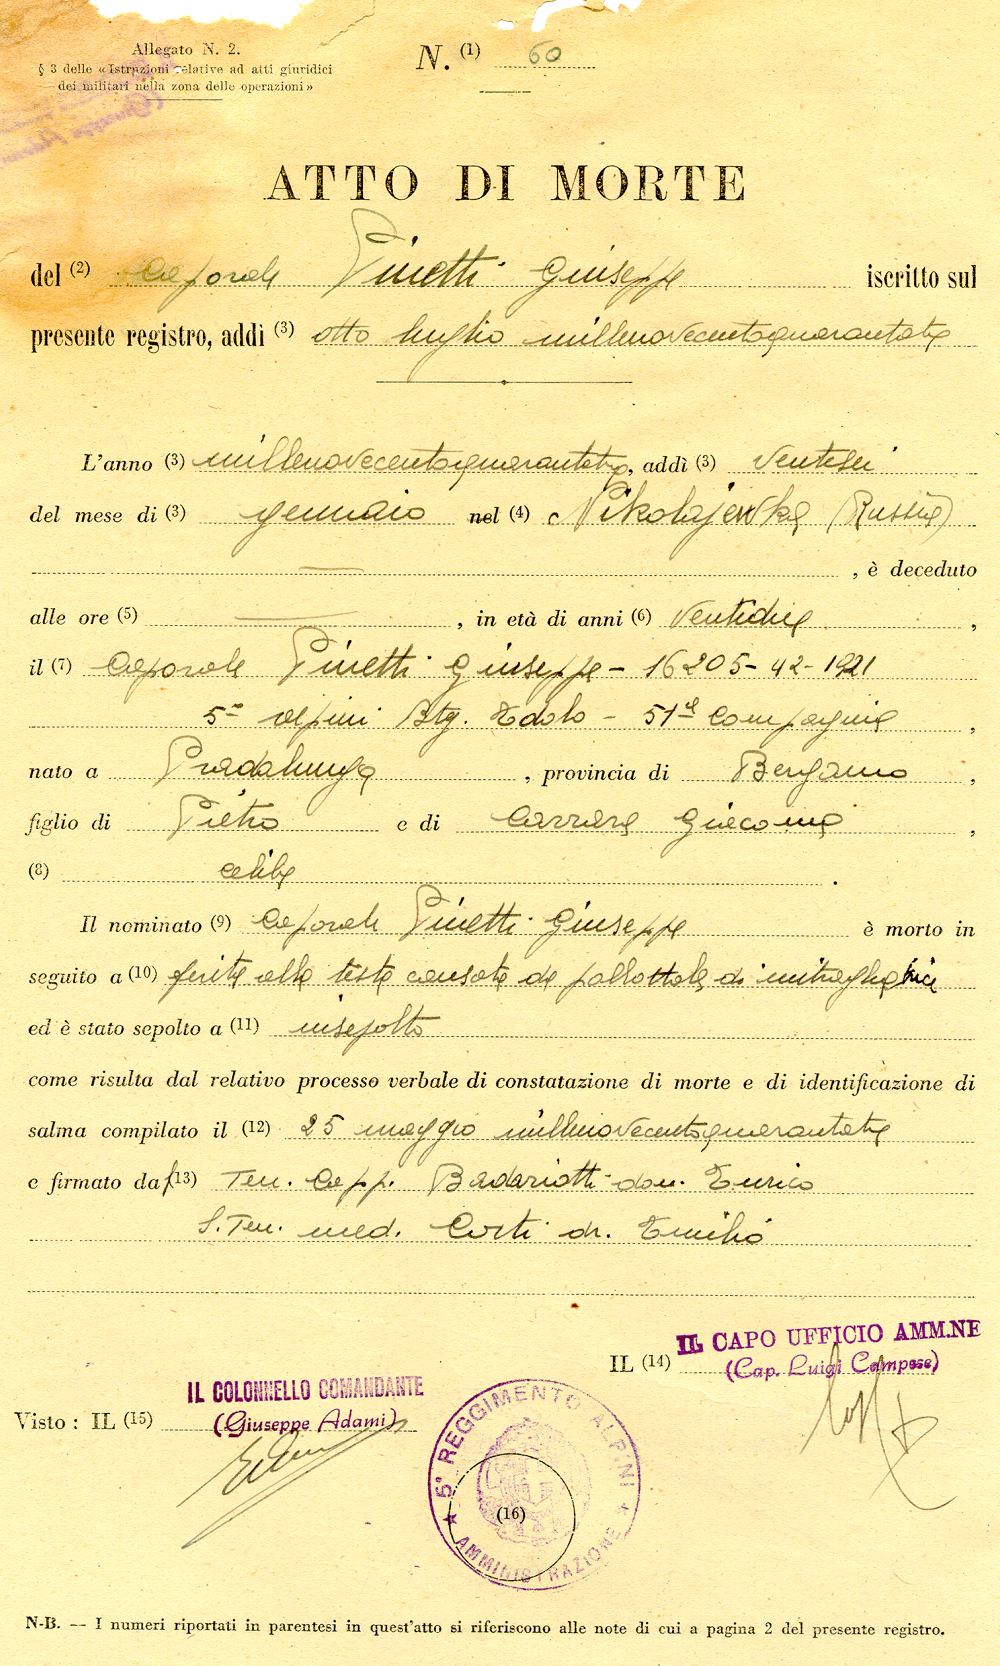 Allegato N. 2.
§ 3 delle «Istruzioni relative ad atti giuridici
dei militari nella zona delle operazioni»
N. (1) 60
ATTO DI MORTE
del (2) Caporale Pinetti Giuseppe iscritto sul
presente registro, addì (3) otto luglio millenovecentoquarantatre
L'anno (3) millenovecentoquarantatre, addì (3) ventisei
del mese di (3) gennaio nel (4) Nikolajewka (Russia)
, è deceduto
alle ore (5) — , in età di anni (6) ventidue ,
il (7) Caporale Pinetti Giuseppe - 16205 - 42 - 1921
5° alpini Btg. Edolo - 51ª Compagnia ,
nato a Pradalunga , provincia di Bergamo ,
figlio di Pietro e di Carrara Giacoma ,
(8) celibe .
Il nominato (9) Caporale Pinetti Giuseppe è morto in
seguito a (10) ferite alla testa causate da pallottole di mitragliatrice
ed è stato sepolto a (11) insepolto
come risulta dal relativo processo verbale di constatazione di morte e di identificazione di
salma compilato il (12) 25 maggio millenovecentoquarantatre
e firmato da (13) Ten. Capp. Badariotti don. Enrico
S. Ten. med. Corti dr. Emilio
IL (14) IL CAPO UFFICIO AMM.NE
(Cap. Luigi Campese)
IL COLONNELLO COMANDANTE
Visto : IL (15) (Giuseppe Adami)
★ 5° REGGIMENTO ALPINI ★
AMMINISTRAZIONE
(16)
N-B. — I numeri riportati in parentesi in quest'atto si riferiscono alle note di cui a pagina 2 del presente registro.